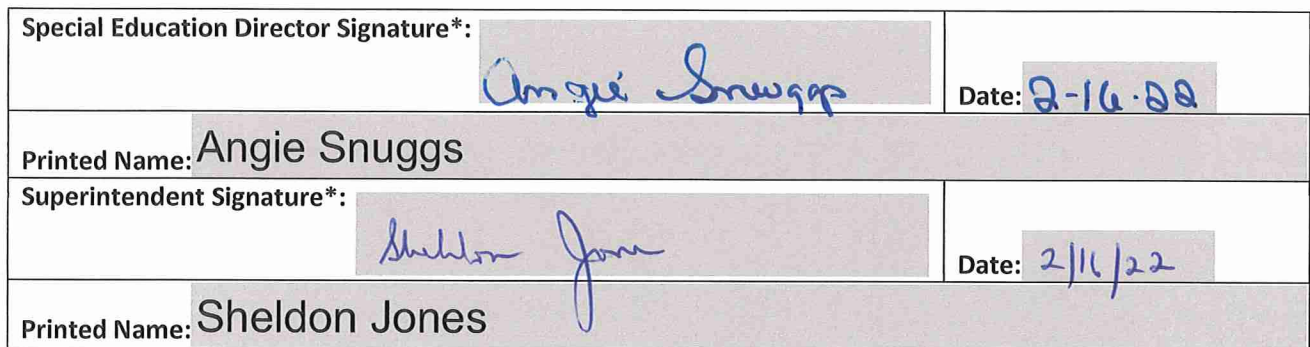 Special Education Director Signature*:
Angie Snuggs
Date: 2-16-22
Printed Name: Angie Snuggs
Superintendent Signature*:
Sheldon Jones
Date: 2/16/22
Printed Name: Sheldon Jones